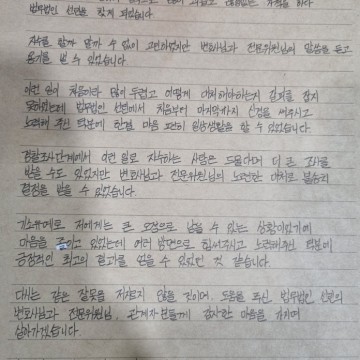 법무법인 선린을 찾게 되었습니다.
자수를 할까 말까 수 없이 고민하였지만 변호사님과 전문위원님의 말씀을 듣고
용기를 낼 수 있었습니다.
이런 일이 처음이라 많이 두렵고 어떻게 대처해야하는지 갈피를 잡지
못하였는데 법무법인 선린에서 처음부터 마지막까지 신경을 써주시고
노력해 주신 덕분에 한결 마음 편히 일상생활을 할 수 있었습니다.
경찰조사단계에서 이런 일로 자수하는 사람은 드물다며 더 큰 조사를
받을 수도 있었지만 변호사님과 전문위원님의 노련한 대처로 불송치
결정을 받을 수 있었습니다.
기소유예로 저에게는 큰 오점으로 남을 수 있는 상황이었기에
마음을 졸이고 있었는데 여러 방면으로 힘써주시고 노력해주신 덕분에
긍정적인 최고의 결과를 얻을 수 있었던 것 같습니다.
다시는 같은 잘못을 저지르지 않을 것이며, 도움을 주신 법무법인 선린의
변호사님과 전문위원님, 관계자분들께 감사한 마음을 가지며
살아가겠습니다.